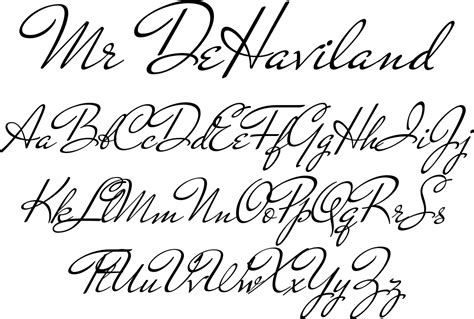 Mr DeHaviland
AaBbCcDdEeFfGgHhIiJj
KkLlMmNnOoPpQqRrSs
TtUuVvWwXxYyZz